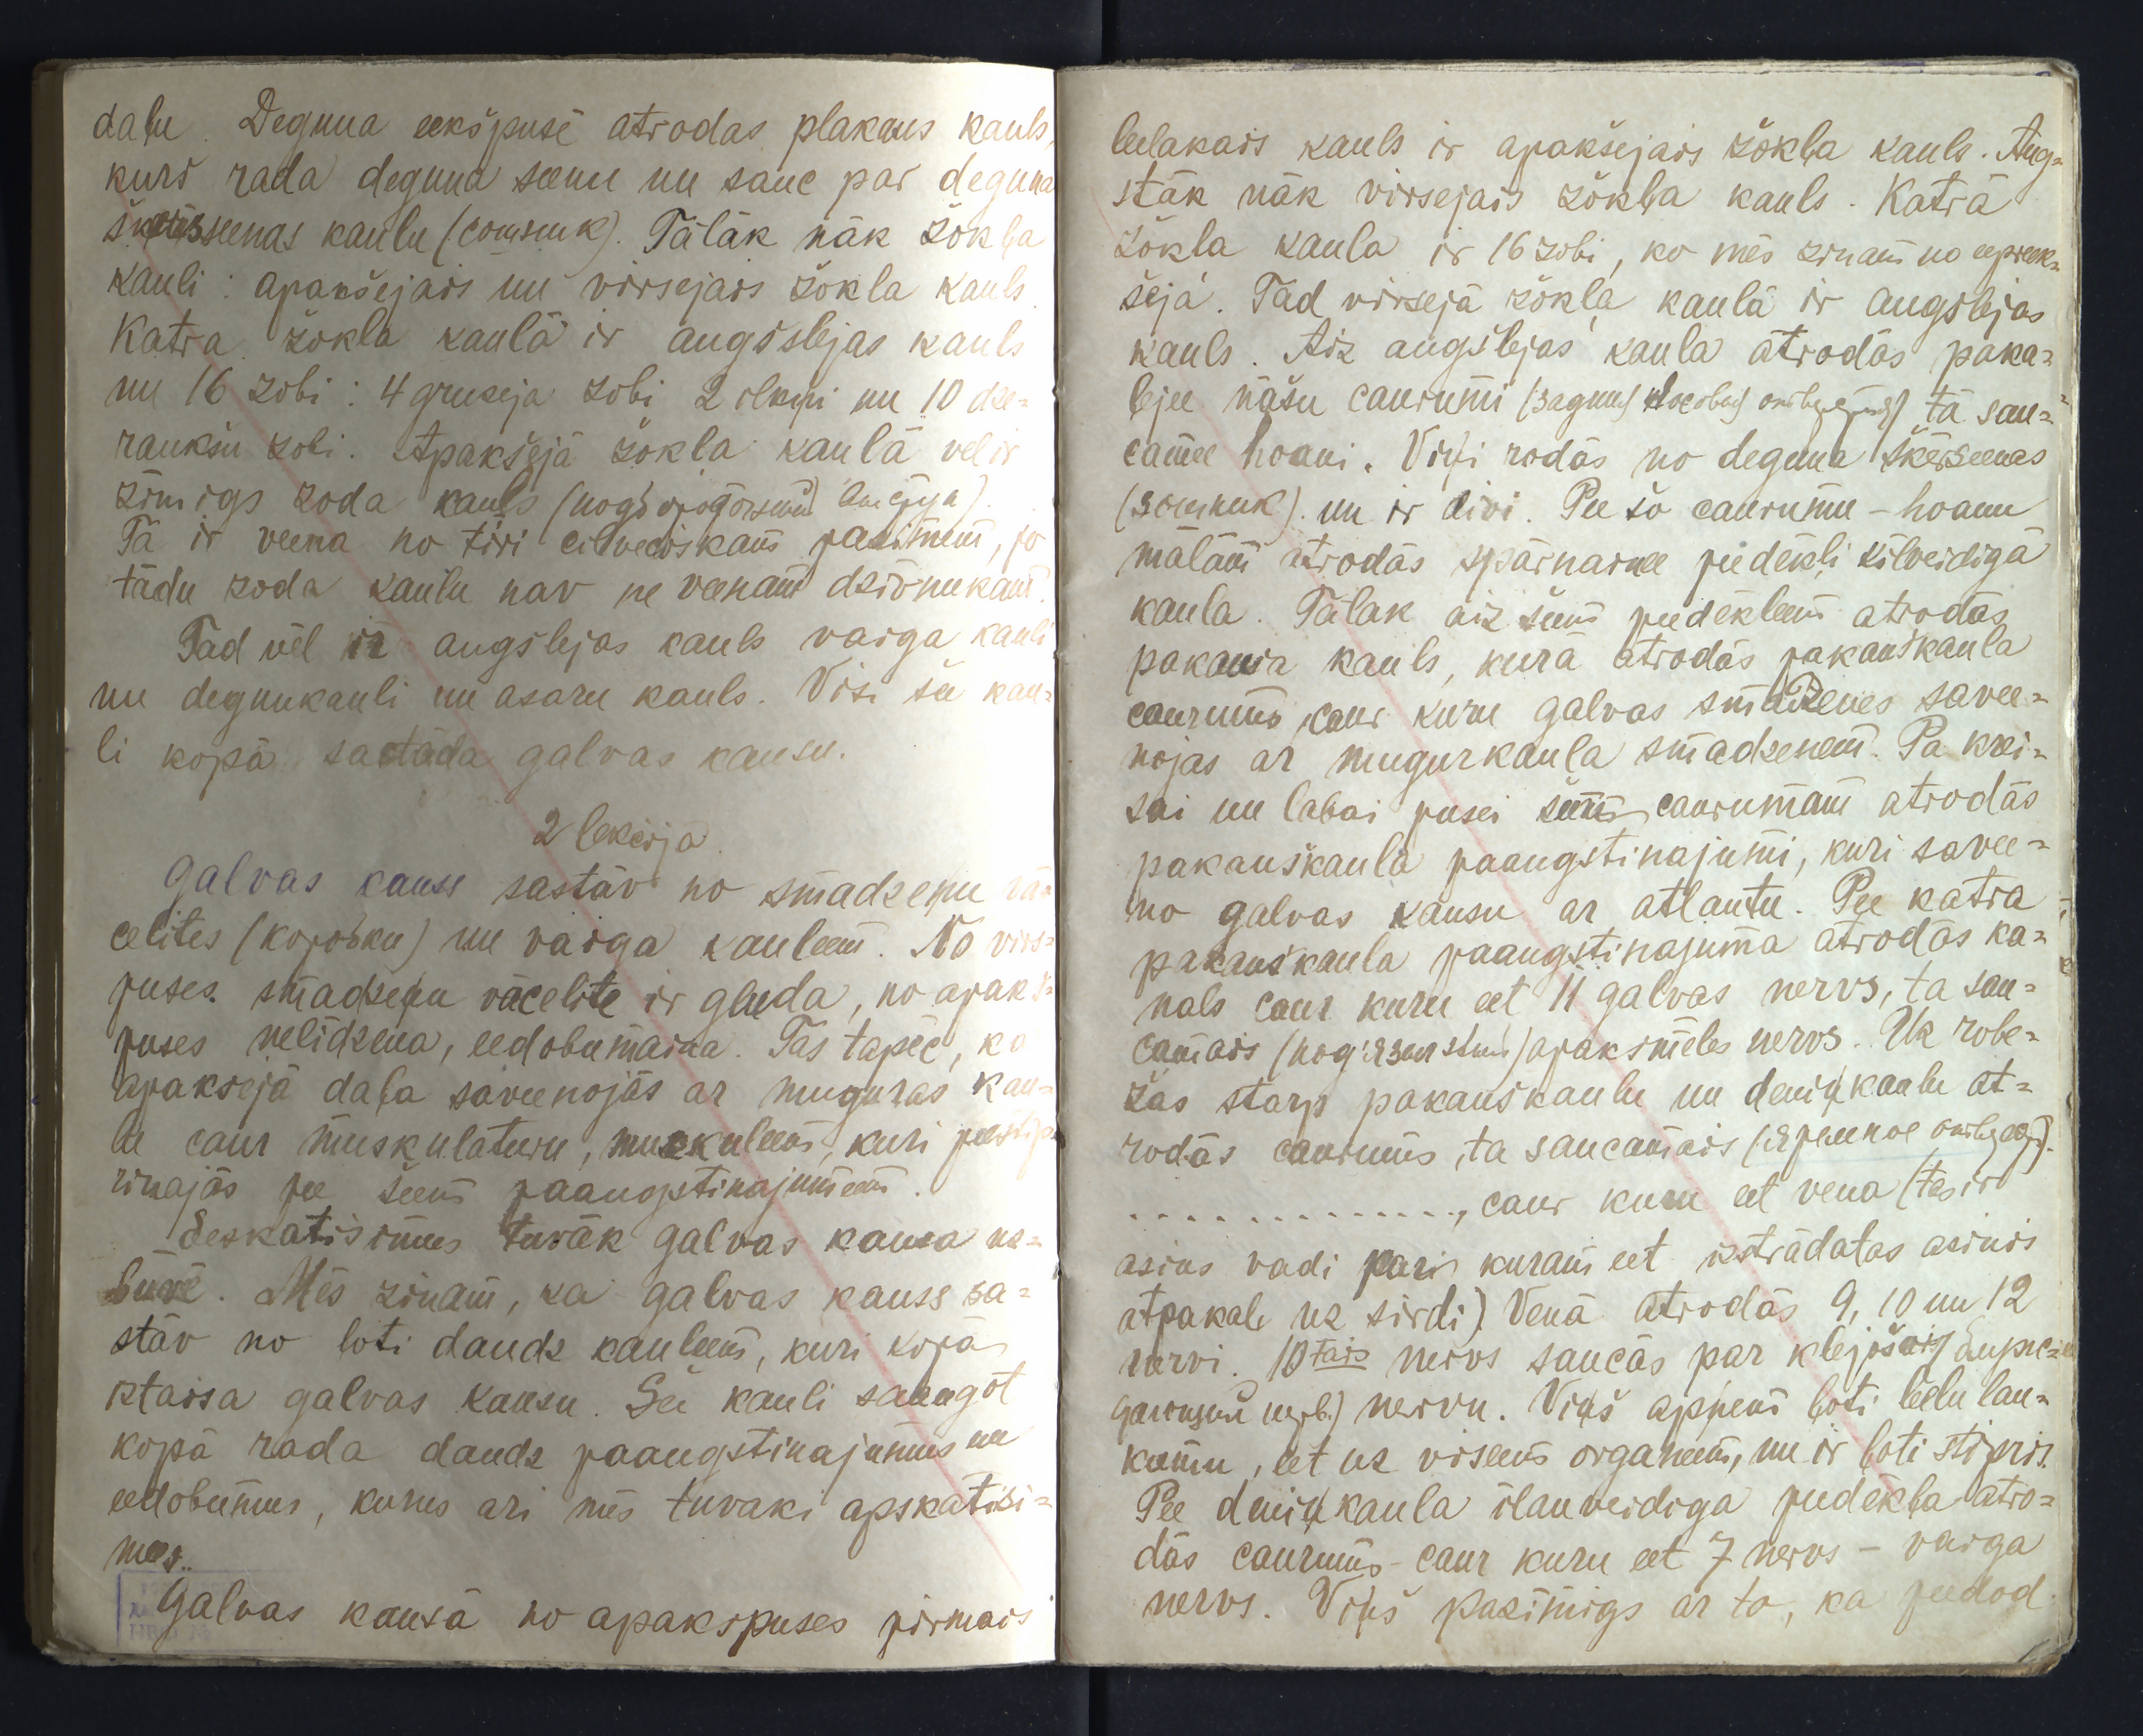 daļu. Deguna eekšpusē atrodas plakans kauls,
kurš rada deguna seenu un sauc par deguna
šķērsseenas kaulu (сошник). Tālāk nāk žokļa
kauli: apakšejais un virsejais žokļa kauls.
Katra žokļa kaulā ir augšslejas kauls
un 16 zobi: 4 greseja zobi 2 ilkņi un 10 dze-
raukšu zobi. Apakšejā žokļa kaulā vel ir
zīmigs zoda kauls (подбородочный
Tā ir veena no tīri cilveciskam pazimem, jo
tādu zoda kaulu nav ne veenam dzivnukam.
Tad vēl ir augslejas kauls vaiga kauli
un degunkauli un asaru kauls. Visi šee kau-
li kopā sastāda galvas kausu.
2 lekcija.
Galvas kauss sastāv no smadzeņu vā-
celites (коробки) un vaiga kauleem. No virs-
puses smadzeņu vācelite ir gluda, no apakš-
puses nelīdzena, eedobumaina. Tas tapēc, ka
apaksejā daļa saveenojās ar muguras kau-
lu caur muskulaturu, muskuleem, kuri peestip-
rinajās pee šeem paaugstinajumeem.
Eeskatisimees tuvāk galvas kausa uz-
buvē. Mēs zinam, ka galvas kauss sa-
stāv no ļoti daudz kauleem, kuri kopā
iztaisa galvas kausu. Šee kauli saaugot
kopā rada daudz paaugstinajumus un
eedobumus, kurus ari mēs tuvaki apskatisi-
mees.
Galvas kausā no apakšpuses pirmais
leelakais kauls ir apakšejais žokļa kauls. Aug-
stāk nāk virsejais žokļa kauls. Katrā
žokļa kaula ir 16 zobi, ko mēs zinam no eepreek-
šejā. Tad virsejā žokļa kaulā ir augslejas
kauls. Aiz augslejas kaula atrodās paka-
ļejee nāšu caurumi (задния носовыя отверстия) tā sau-
camee hoani. Viņi rodās no deguna šķērsseenas
(зошник) un ir divi. Pee šo caurumu - hoanu
malām atrodās spārnainee peedēkļi ķīlveidigā
kaula. Tālak aiz šeem peedēkleem atrodās
pakauša kauls, kurā atrodās pakauškaula
caurums, caur kuru galvas smadzenes savee-
nojas ar mugurkaula smadzenem. Pa krei-
sai un labai pusei šeem caurumam atrodās
pakauškaula paaugstinajumi, kuri savee-
no galvas kausu ar atlantu. Pee katra
pakauškaula paaugstinajuma atrodās ka-
nals caur kuru eet 11 galvas nervs, ta sau-
camais (подъязычный) apaksmēles nervs. Uz robe-
žas starp pakauškaulu un deniņkaulu at-
rodās caurums, ta saucamais (яремное отверст.)
............., caur kuru eet vena (tas ir
asins vadi pa kuram eet izstrādatas asinis
atpakaļ uz sirdi). Venā atrodās 9, 10 un 12
nervi. 10tais nervs saucās par klejošais
нерв.) nervu. Viņš apņem ļoti leelu lau-
kumu, eet uz viseem organeem, un ir ļoti stipris.
Pee deniņkaula īlenveidiga peedēkļa atro-
dās caurums - caur kuru eet 7 nervs - vaiga
nervs. Viņš pazīmigs ar to, ka peedod